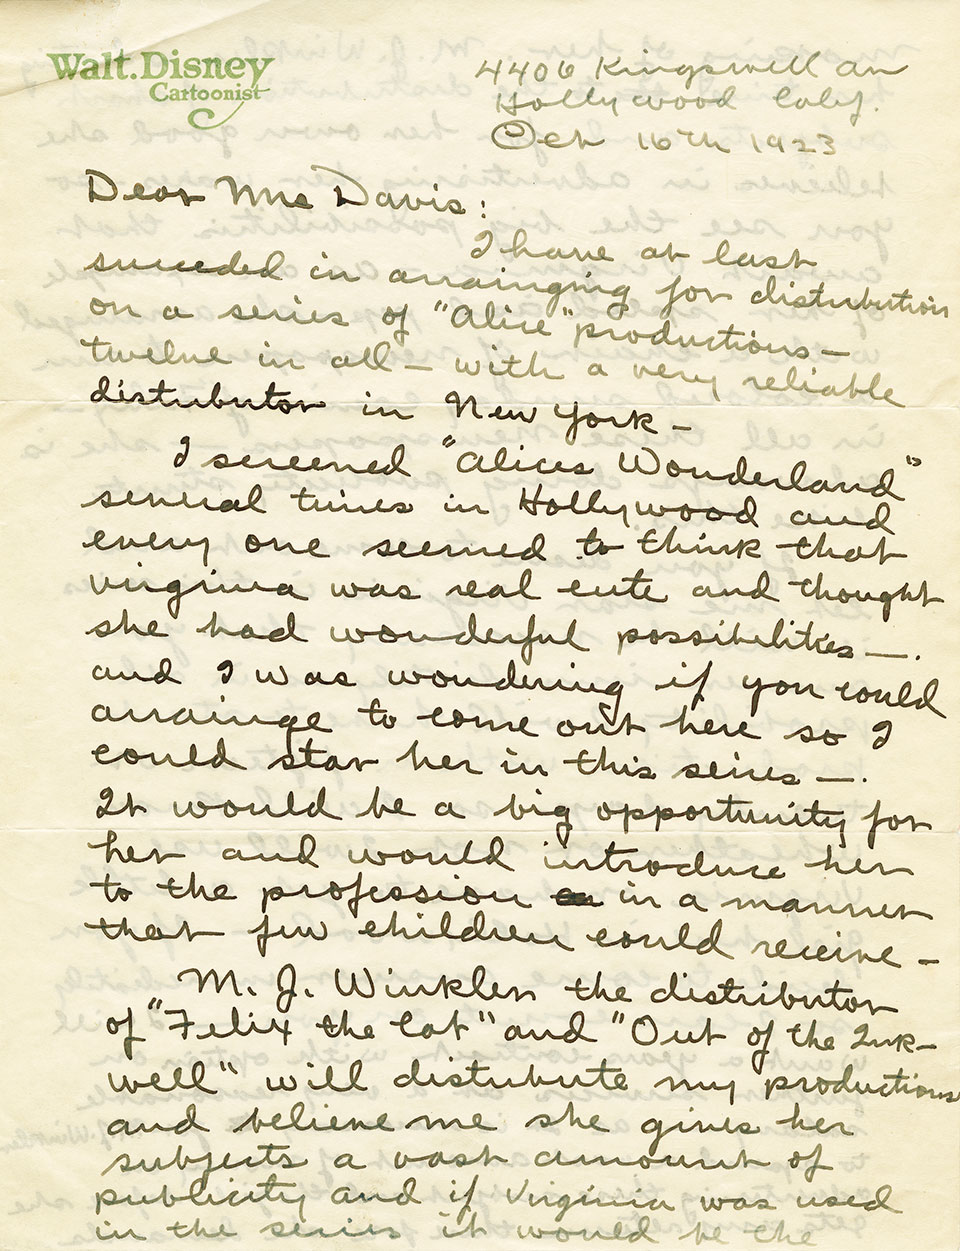 Walt. Disney
Cartoonist
4406 Kingswell av
Hollywood Calif.
Oct 16th 1923
Dear Mrs Davis:
I have at last
succeeded in arrainging for distribution
on a series of "Alice" productions —
twelve in all — with a very reliable
distributor in New York —
I screened "Alices Wonderland"
several times in Hollywood and
every one seemed to think that
virginia was real cute and thought
she had wonderful possibilities —.
and I was wondering if you could
arrainge to come out here so I
could star her in this series —.
It would be a big opportunity for
her and would introduce her
to the profession in a manner
that few children could receive —
M. J. Winkler the distributor
of "Felix the Cat" and "Out of the Ink-
well" will distribute my productions
and believe me she gives her
subjects a vast amount of
publicity and if Virginia was used
in the series it would be the